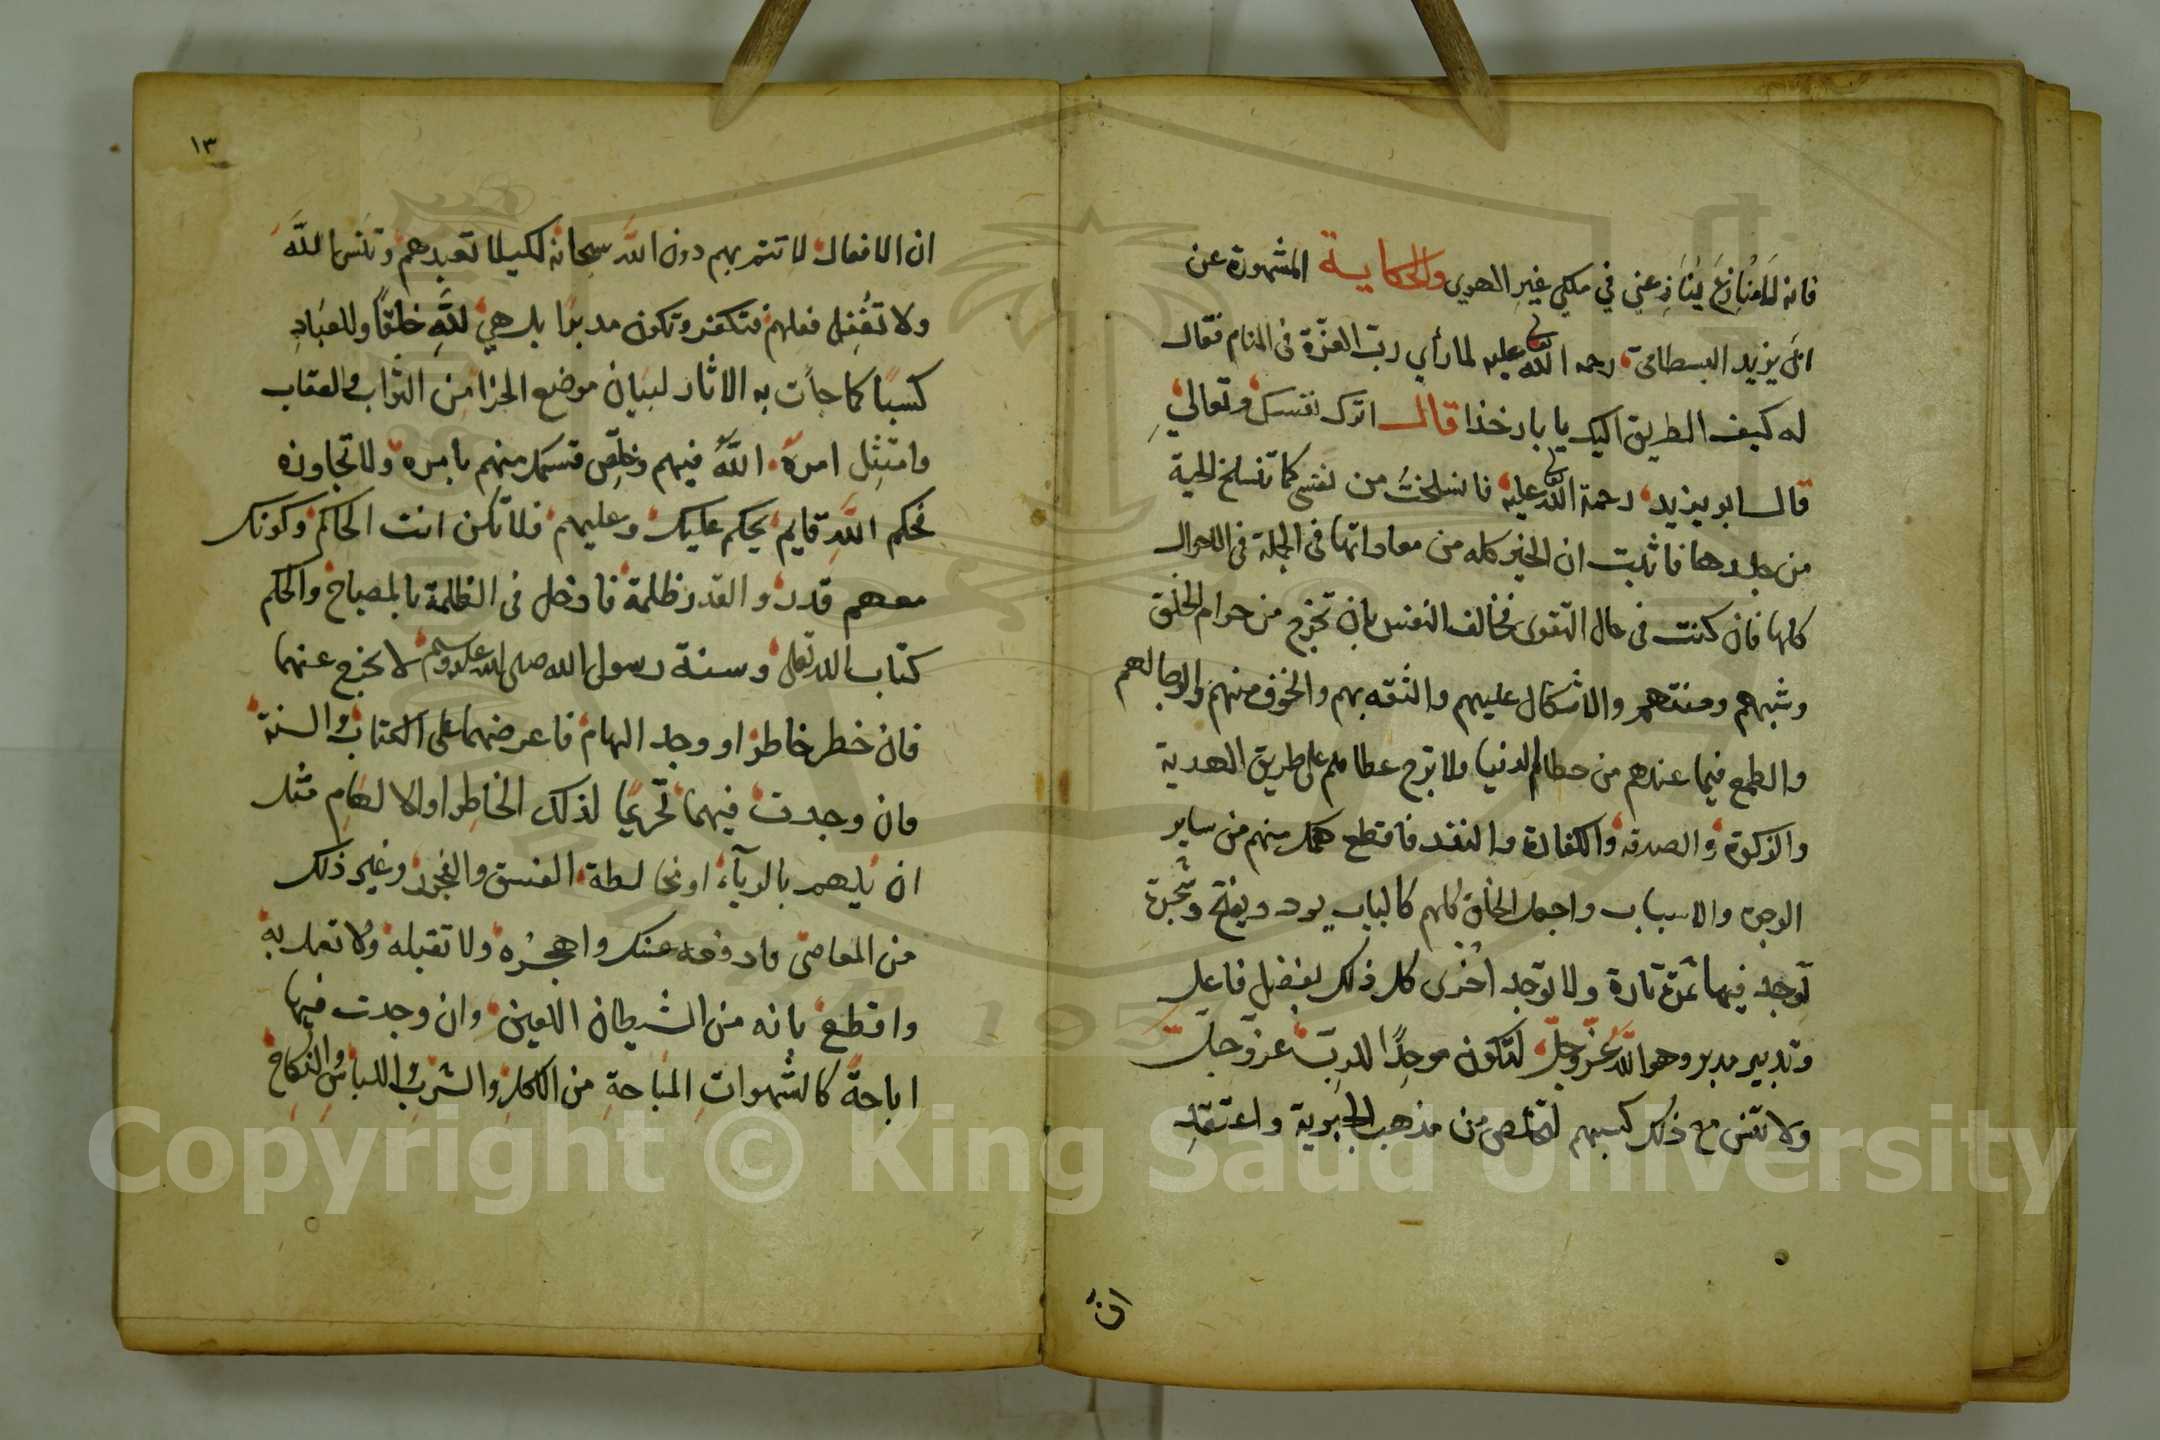 فانه لا منازع ينازعني في ملكي غير الهوي والحكاية المشهورة عن
ابي يزيد البسطامي رحمة الله تعالى عليه لما رأي رب العزة في المنام فقال
له كيف الطريق اليك يا بارخذا قال اترك نفسك وتعالي
قال ابو يزيد رحمة الله تعالى عليه فانسلخت من نفسي كما تنسلخ الحية
من جلدها فاثبت ان الخير كله من معاداتها في الجملة في الاحوال
كلها فان كنت في حال التقوى فخالف النفس بان تخرج من حرام الخلق
وشبههم ومنتهم والاتكال عليهم والثقه بهم والخوف منهم والرجا لهم
والطمع فيما عندهم من حطام الدنيا ولا ترج عطاهم على طريق الهدية
والزكوة والصدقه والكفارة والنذر فاقطع همك منهم من ساير
الوجوه والاسباب واجعل الخلق كلهم كالباب يرد ويفتح وشجرة
توجد فيها ثمرة تارة ولا توجد اخرى كل ذلك بفضل فاعل
وتدبير مدبر وهو الله عز وجل لتكون موحدًا للرب عز وجل
ولا تنس مع ذلك كسبهم لتخلص من مذهب الجبرية واعتقد
ان
١٣
ان الافعال لا تتم بهم دون الله سبحانه لكيلا تعبدهم وتنسى الله
ولا تقل فعلهم فتكفر وتكون قدريا بل هي لله خلقًا وللعباد
كسبًا كما جأت به الاثار لبيان موضع الجزا من الثواب والعقاب
وامتثل امره الله فيهم وخلص قسمك منهم بامره ولا تجاوزه
فحكم الله قايم يحكم عليك وعليهم فلا تكن انت الحاكم وكونك
معهم قدر والقدر ظلمة فادخل في الظلمة بالمصباح والحكم
كتاب الله تعالى وسنة رسول الله صلى الله عليه وسلم لا تخرج عنهما
فان خطر خاطر او وجد الهام فاعرضهما على الكتاب والسنة
فان وجدت فيهما تحريمًا لذلك الخاطر او الالهام مثل
ان يلهم بالرياء او مخالطة الفسق والفجور وغير ذلك
من المعاصي فادفعه عنك واهجره ولا تقبله ولا تعمل به
واقطع بانه من الشيطان اللعين وان وجدت فيهما
اباحة كالشهوات المباحة من الاكل والشرب واللباس والنكاح
Copyright © King Saud University
1957